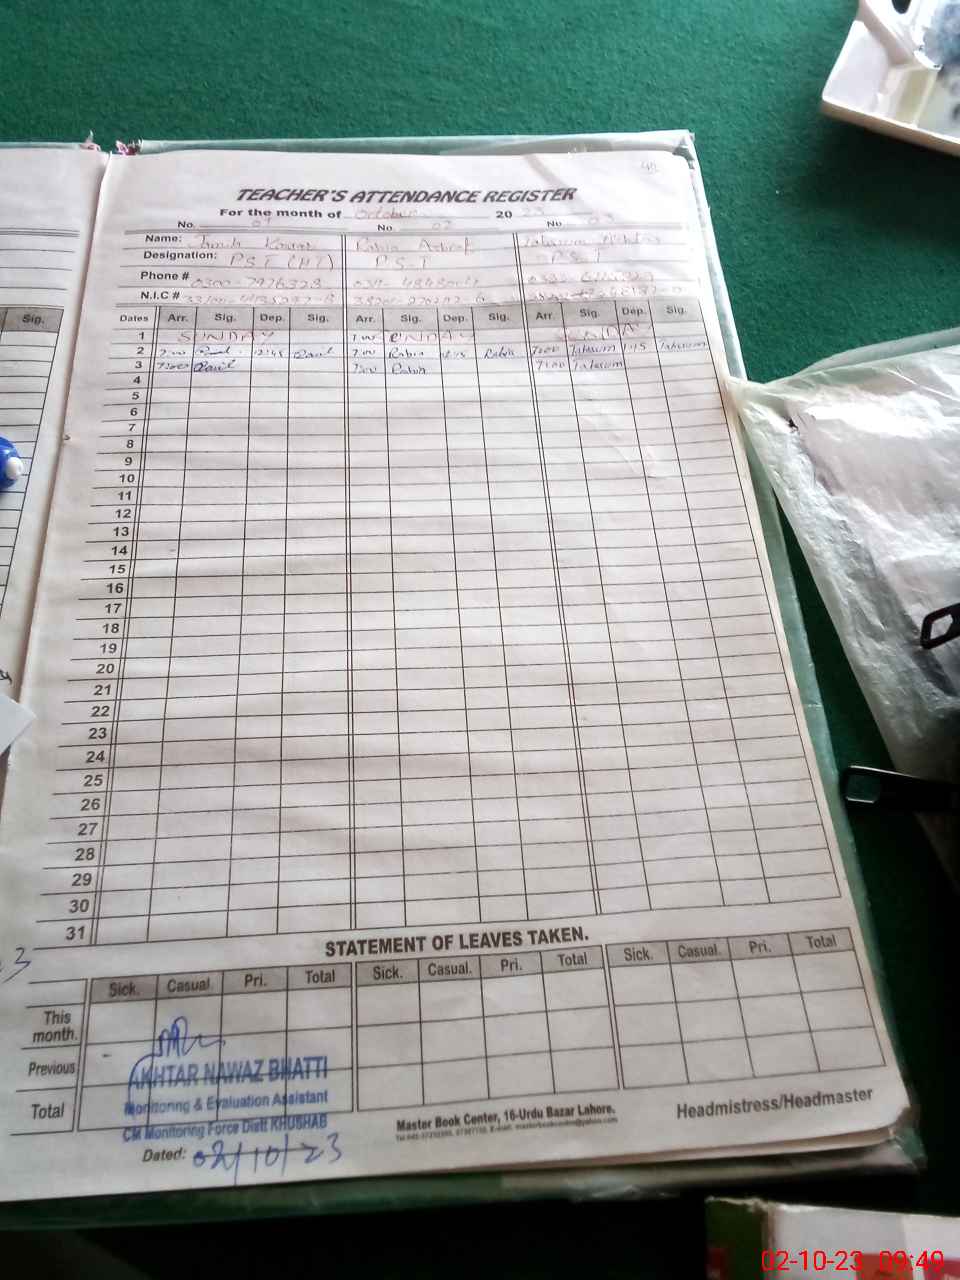 TEACHER'S ATTENDANCE REGISTER
For the month of October 2023
No. 01 No. 02 No. 03
Name: Kousar Rabia Ashraf
Designation: P.S.T (HT) P.S.T P.S.T
Phone # 0300-7976328
N.I.C #
Sig. Dates Arr. Sig. Dep. Sig. Arr. Sig. Dep. Sig. Arr. Sig. Dep. Sig.
1 SUNDAY SUNDAY SUNDAY
2 7:00 12:45 7:00 Rabia Rabia 7:00 Tabasum 1:45 Tabasum
3 7:00 7:00 Rabia 7:00 Tabasum
4
5
6
7
8
9
10
11
12
13
14
15
16
17
18
19
20
21
22
23
24
25
26
27
28
29
30
31
STATEMENT OF LEAVES TAKEN.
Sick. Casual. Pri. Total Sick. Casual. Pri. Total Sick. Casual. Pri. Total
This month.
Previous
Total
AKHTAR NAWAZ BHATTI
Monitoring & Evaluation Assistant
CM Monitoring Force Distt KHUSHAB
Dated: 02/10/23
Master Book Center, 16-Urdu Bazar Lahore.
Headmistress/Headmaster
02-10-23 09:49